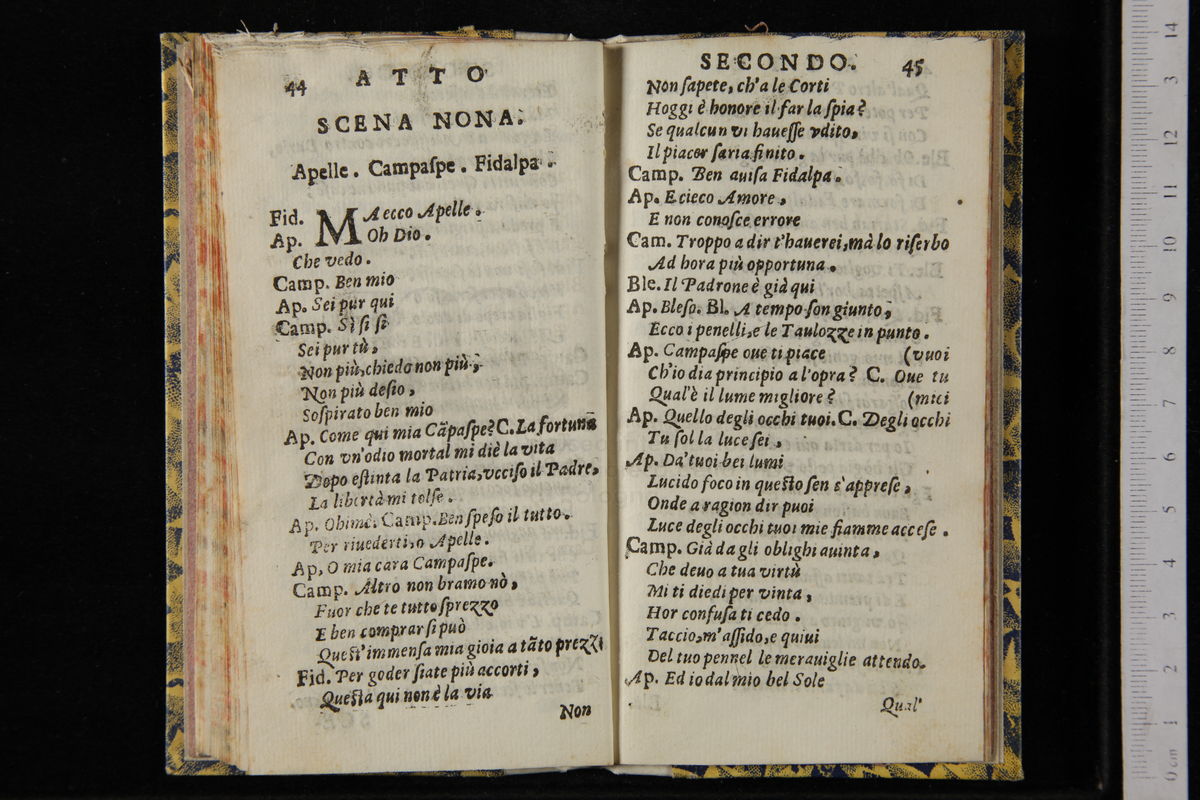 44 ATTO
SCENA NONA.
Apelle. Campaſpe. Fidalpa.
Fid. MA ecco Apelle.
Ap. Oh Dio.
Che vedo.
Camp. Ben mio
Ap. Sei pur qui
Camp. Sì ſi ſi
Sei pur tù,
Non più, chiedo non più,
Non più deſio,
Soſpirato ben mio
Ap. Come qui mia Cãpaſpe? C. La fortuna
Con vn'odio mortal mi diè la vita
Dopo eſtinta la Patria, vcciſo il Padre,
La libertà mi tolſe.
Ap. Ohimè. Camp. Ben ſpeſo il tutto.
Per riuederti, o Apelle.
Ap, O mia cara Campaſpe.
Camp. Altro non bramo nò,
Fuor che te tutto ſprezzo
E ben comprar ſi può
Queſt'immenſa mia gioia a tãto prezzi
Fid. Per goder ſiate più accorti,
Queſta qui non è la via
Non
SECONDO. 45
Non ſapete, ch'a le Corti
Hoggi è honore il far la ſpia?
Se qualcun vi haueſſe vdito,
Il piacer ſaria finito.
Camp. Ben auiſa Fidalpa.
Ap. E cieco Amore,
E non conoſce errore
Cam. Troppo a dir t'hauerei, mà lo riſerbo
Ad hora più opportuna.
Ble. Il Padrone è già qui
Ap. Bleſo. Bl. A tempo ſon giunto,
Ecco i penelli, e le Taulozze in punto.
Ap. Campaſpe oue ti piace (vuoi
Ch'io dia principio a l'opra? C. Oue tu
Qual'è il lume migliore? (miei
Ap. Quello degli occhi tuoi. C. Degli occhi
Tu ſol la luce ſei,
Ap. Da' tuoi bei lumi
Lucido foco in queſto ſen s'appreſe,
Onde a ragion dir puoi
Luce degli occhi tuoi mie fiamme acceſe.
Camp. Già da gli oblighi auinta,
Che deuo a tua virtù
Mi ti diedi per vinta,
Hor confuſa ti cedo.
Taccio, m'aſſido, e quiui
Del tuo pennel le merauiglie attendo.
Ap. Ed io dal mio bel Sole
Qual'